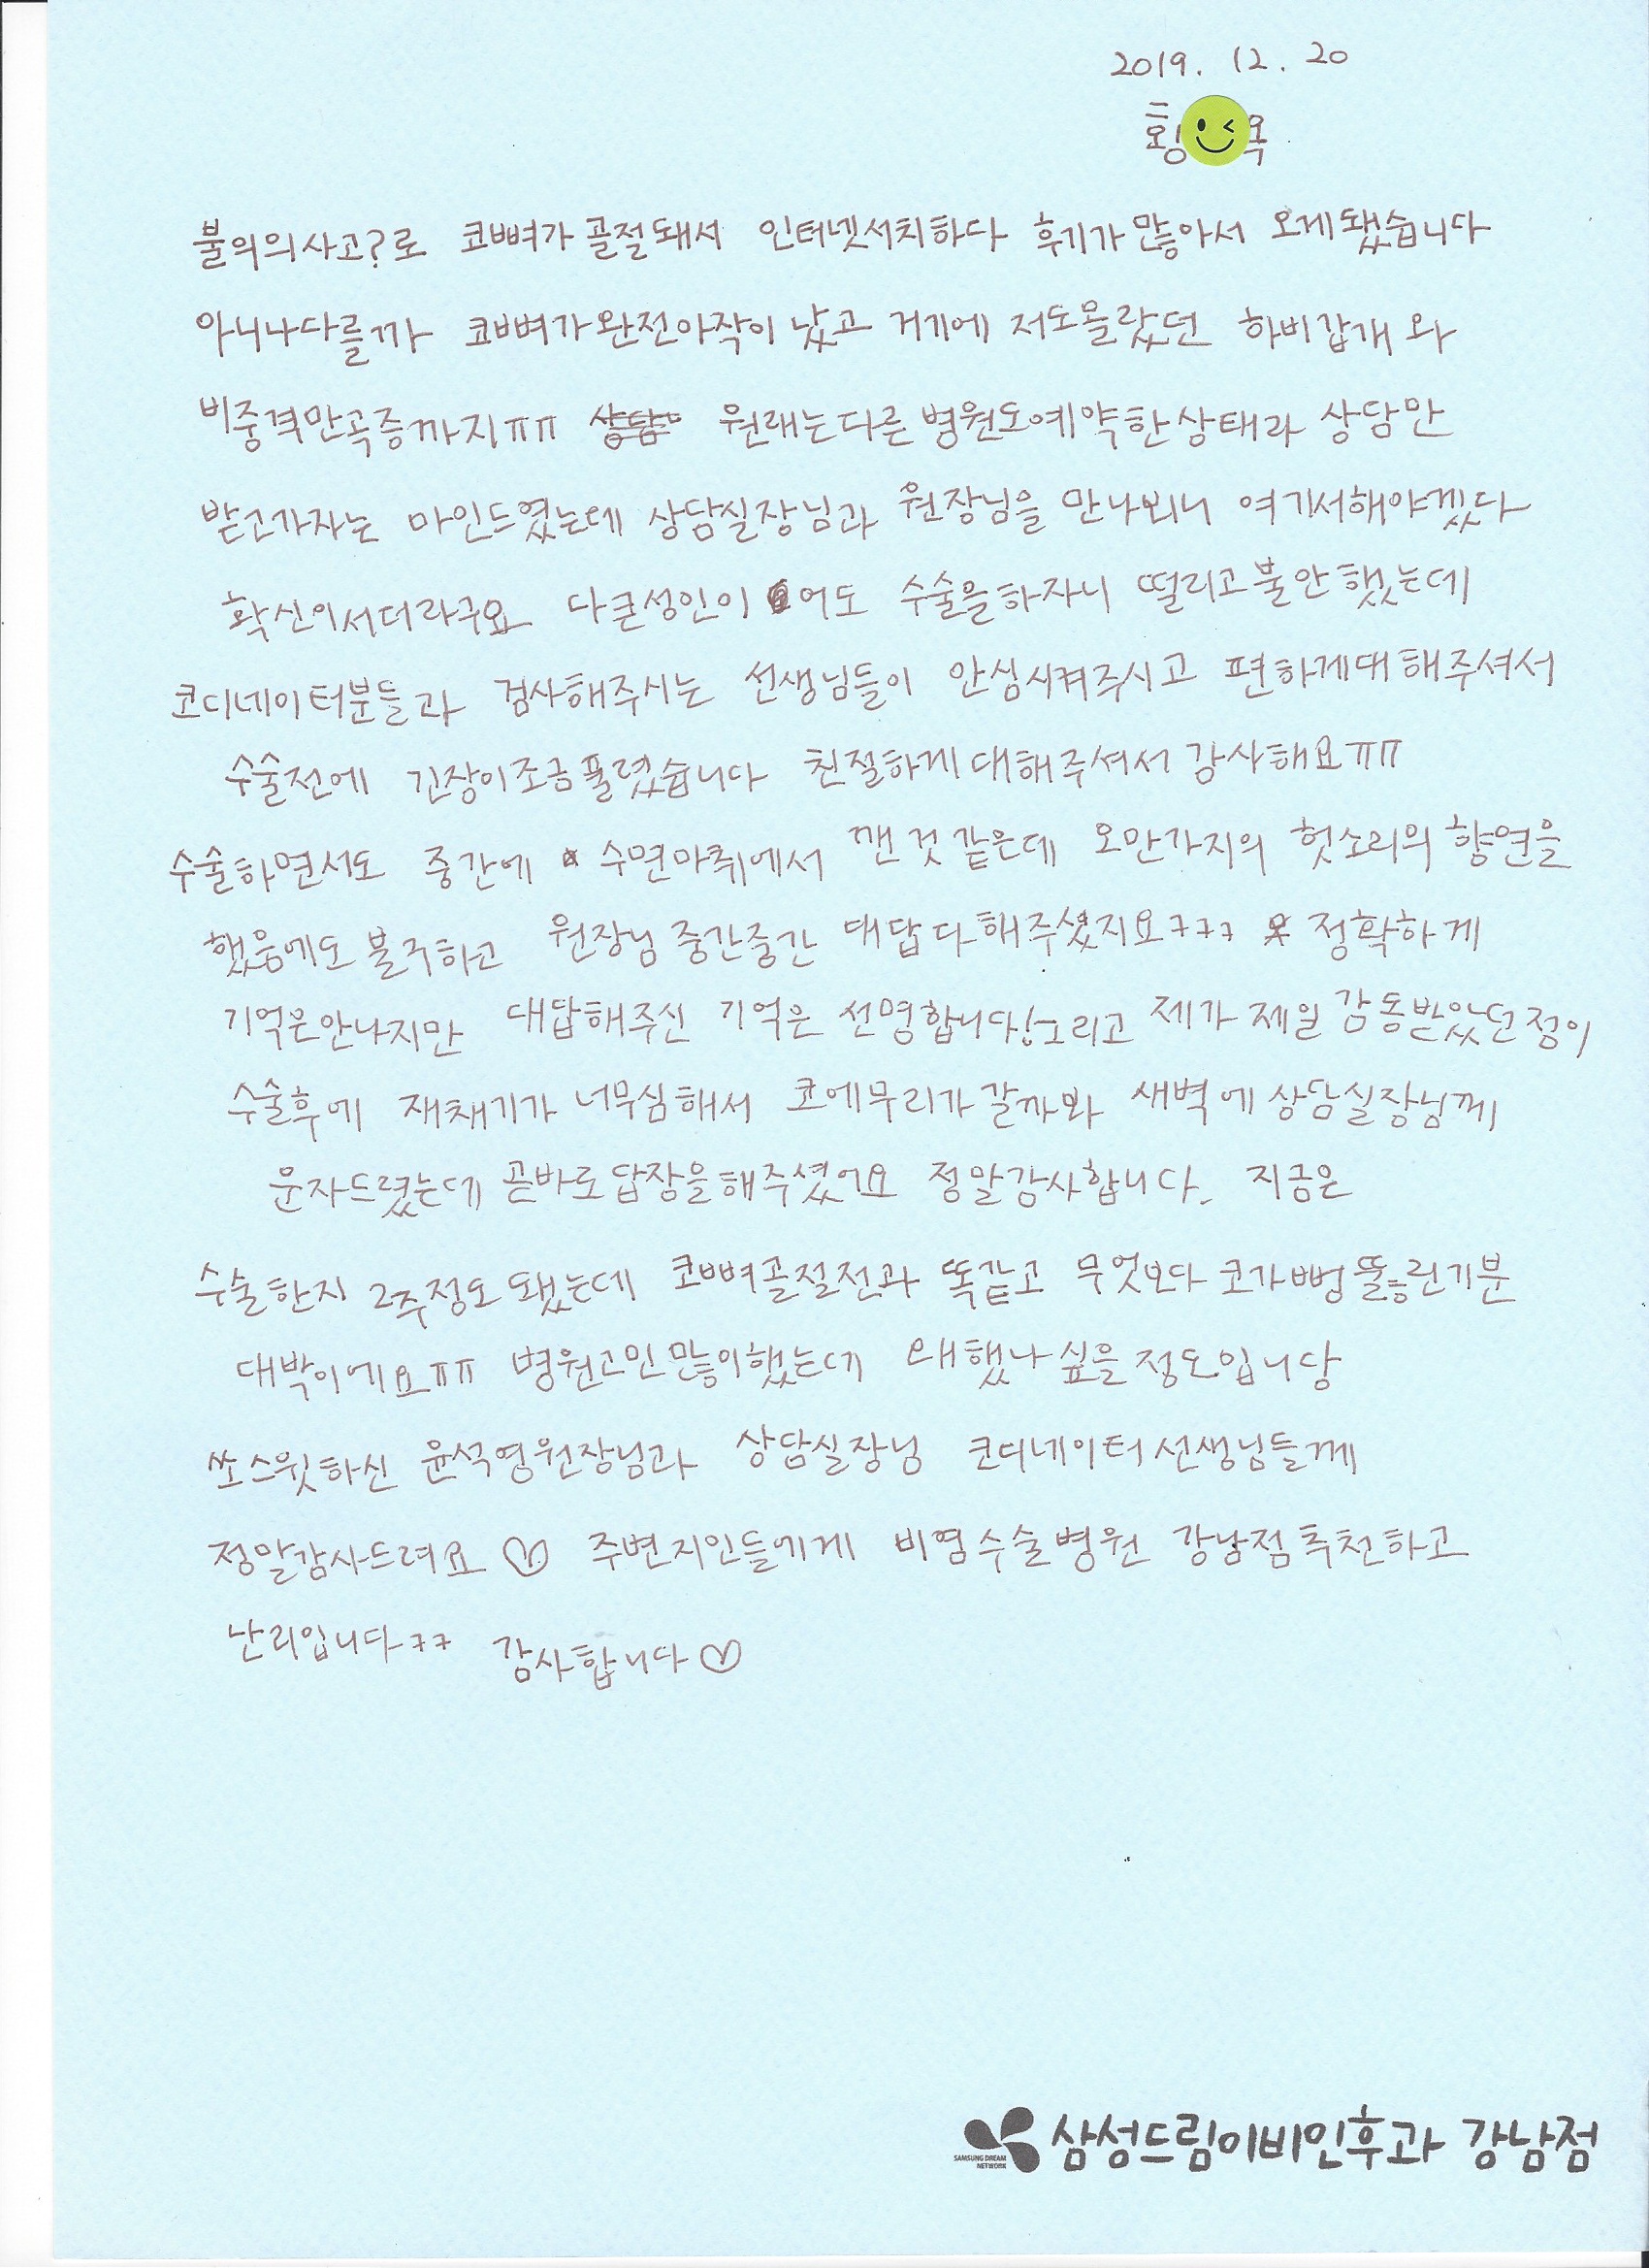 2019. 12. 20
황 옥
불의의사고?로 코뼈가골절돼서 인터넷서치하다 후기가많아서 오게됐습니다
아니나다를까 코뼈가완전아작이 났고 거기에 저도몰랐던 하비갑개와
비중격만곡증까지ㅠㅠ 원래는다른병원도예약한상태라 상담만
받고가자는 마인드였는데 상담실장님과 원장님을 만나뵈니 여기서해야겠다
확신이서더라구요 다큰성인이어도 수술을하자니 떨리고불안했는데
코디네이터분들과 검사해주시는 선생님들이 안심시켜주시고 편하게대해주셔서
수술전에 긴장이조금풀렸습니다 친절하게대해주셔서감사해요ㅠㅠ
수술하면서도 중간에 수면마취에서 깬것같은데 오만가지의 헛소리의향연을
했음에도불구하고 원장님중간중간 대답다해주셨지요ㅋㅋㅋ 정확하게
기억은안나지만 대답해주신 기억은 선명합니다! 그리고 제가제일감동받았던점이
수술후에 재채기가 너무심해서 코에무리가갈까봐 새벽에상담실장님께
문자드렸는데 곧바로답장을해주셨어요 정말감사합니다. 지금은
수술한지 2주정도됐는데 코뼈골절전과 똑같고 무엇보다 코가뻥뚫린기분
대박이에요ㅠㅠ 병원고민많이했는데 왜했나싶을정도입니당
쏘스윗하신 윤석영원장님과 상담실장님 코디네이터선생님들께
정말감사드려요 ♡ 주변지인들에게 비염수술병원 강남점추천하고
난리입니다ㅋㅋ 감사합니다♡
SAMSUNG DREAM NETWORK 삼성드림이비인후과 강남점